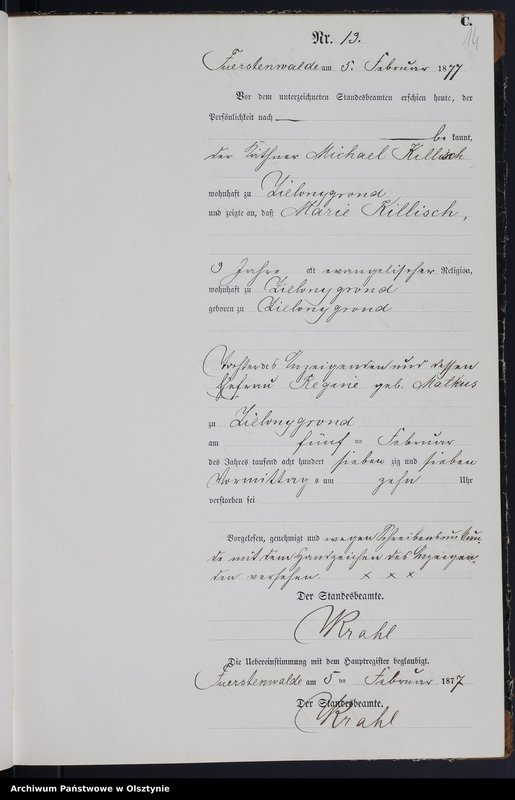 C.
14
Nr. 13.
Fuerstenwalde am 5. Februar 1877
Vor dem unterzeichneten Standesbeamten erschien heute, der
Persönlichkeit nach
be kannt,
der Käthner Michael Killisch
wohnhaft zu Zielonygrond
und zeigte an, daß Marie Killisch,
9 Jahre alt evangelischer Religion,
wohnhaft zu Zielonygrond
geboren zu Zielonygrond
Tochter des Anzeigenden und dessen
Ehefrau Regine geb. Malkus
zu Zielonygrond
am fünf ten Februar
des Jahres tausend acht hundert sieben zig und sieben
Vormittag s um zehn Uhr
verstorben sei
Vorgelesen, genehmigt und wegen Schreibensunkun-
de mit dem Handzeichen des Anzeigen-
den versehen. x x x
Der Standesbeamte.
Krahl
Die Uebereinstimmung mit dem Hauptregister beglaubigt.
Fuerstenwalde am 5 ten Februar 1877
Der Standesbeamte.
Krahl
Archiwum Państwowe w Olsztynie